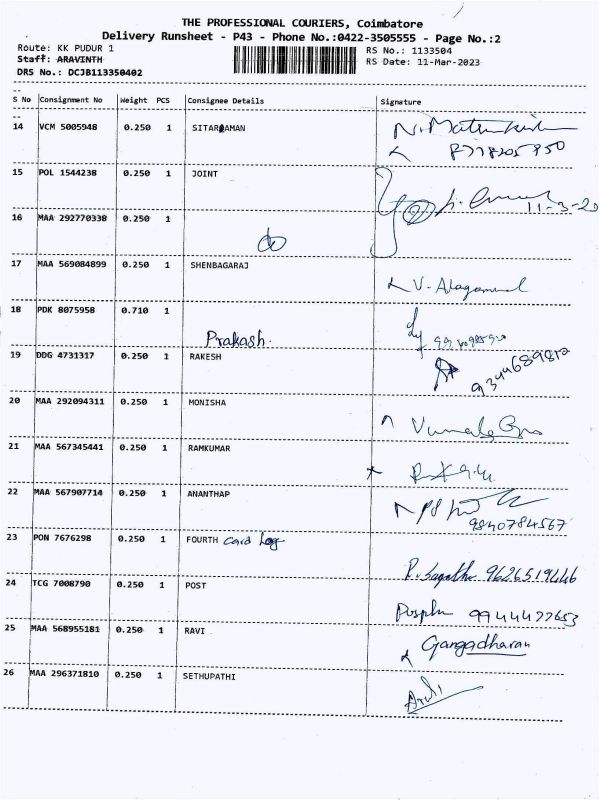 THE PROFESSIONAL COURIERS, Coimbatore
Delivery Runsheet - P43 - Phone No.:0422-3505555 - Page No.:2
Route: KK PUDUR 1 RS No.: 1133504
Staff: ARAVINTH RS Date: 11-Mar-2023
DRS No.: DCJB113350402
S No Consignment No Weight PCS Consignee Details Signature
14 VCM 5005948 0.250 1 SITARAMAN
15 POL 1544238 0.250 1 JOINT
11-3-20
16 MAA 292770338 0.250 1
17 MAA 569084899 0.250 1 SHENBAGARAJ
V. Alagammal
18 PDK 8075958 0.710 1
Prakash.
19 DDG 4731317 0.250 1 RAKESH
9344689812
20 MAA 292094311 0.250 1 MONISHA
21 MAA 567345441 0.250 1 RAMKUMAR
22 MAA 567907714 0.250 1 ANANTHAP
9840784567
23 PON 7676298 0.250 1 FOURTH
9626519446
24 TCG 7008790 0.250 1 POST
9944477653
25 MAA 568955181 0.250 1 RAVI
Gangadharan
26 MAA 296371810 0.250 1 SETHUPATHI